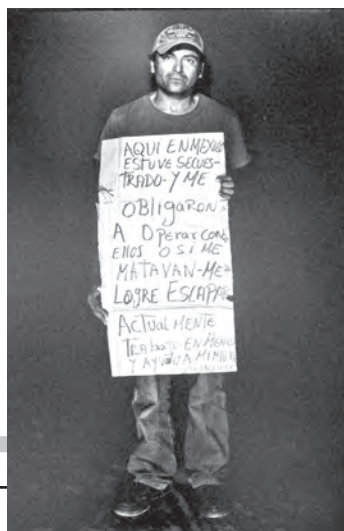 AQUI EN MEXICO
ESTUVE SECUES-
TRADO-Y ME
OBligaRON
A OperarCON
EllOS O SI ME
MATAVAN-ME
LOGRE ESCAPAR
ACTUALMENTE
TrabaJO EN
Y AYUDO A MI